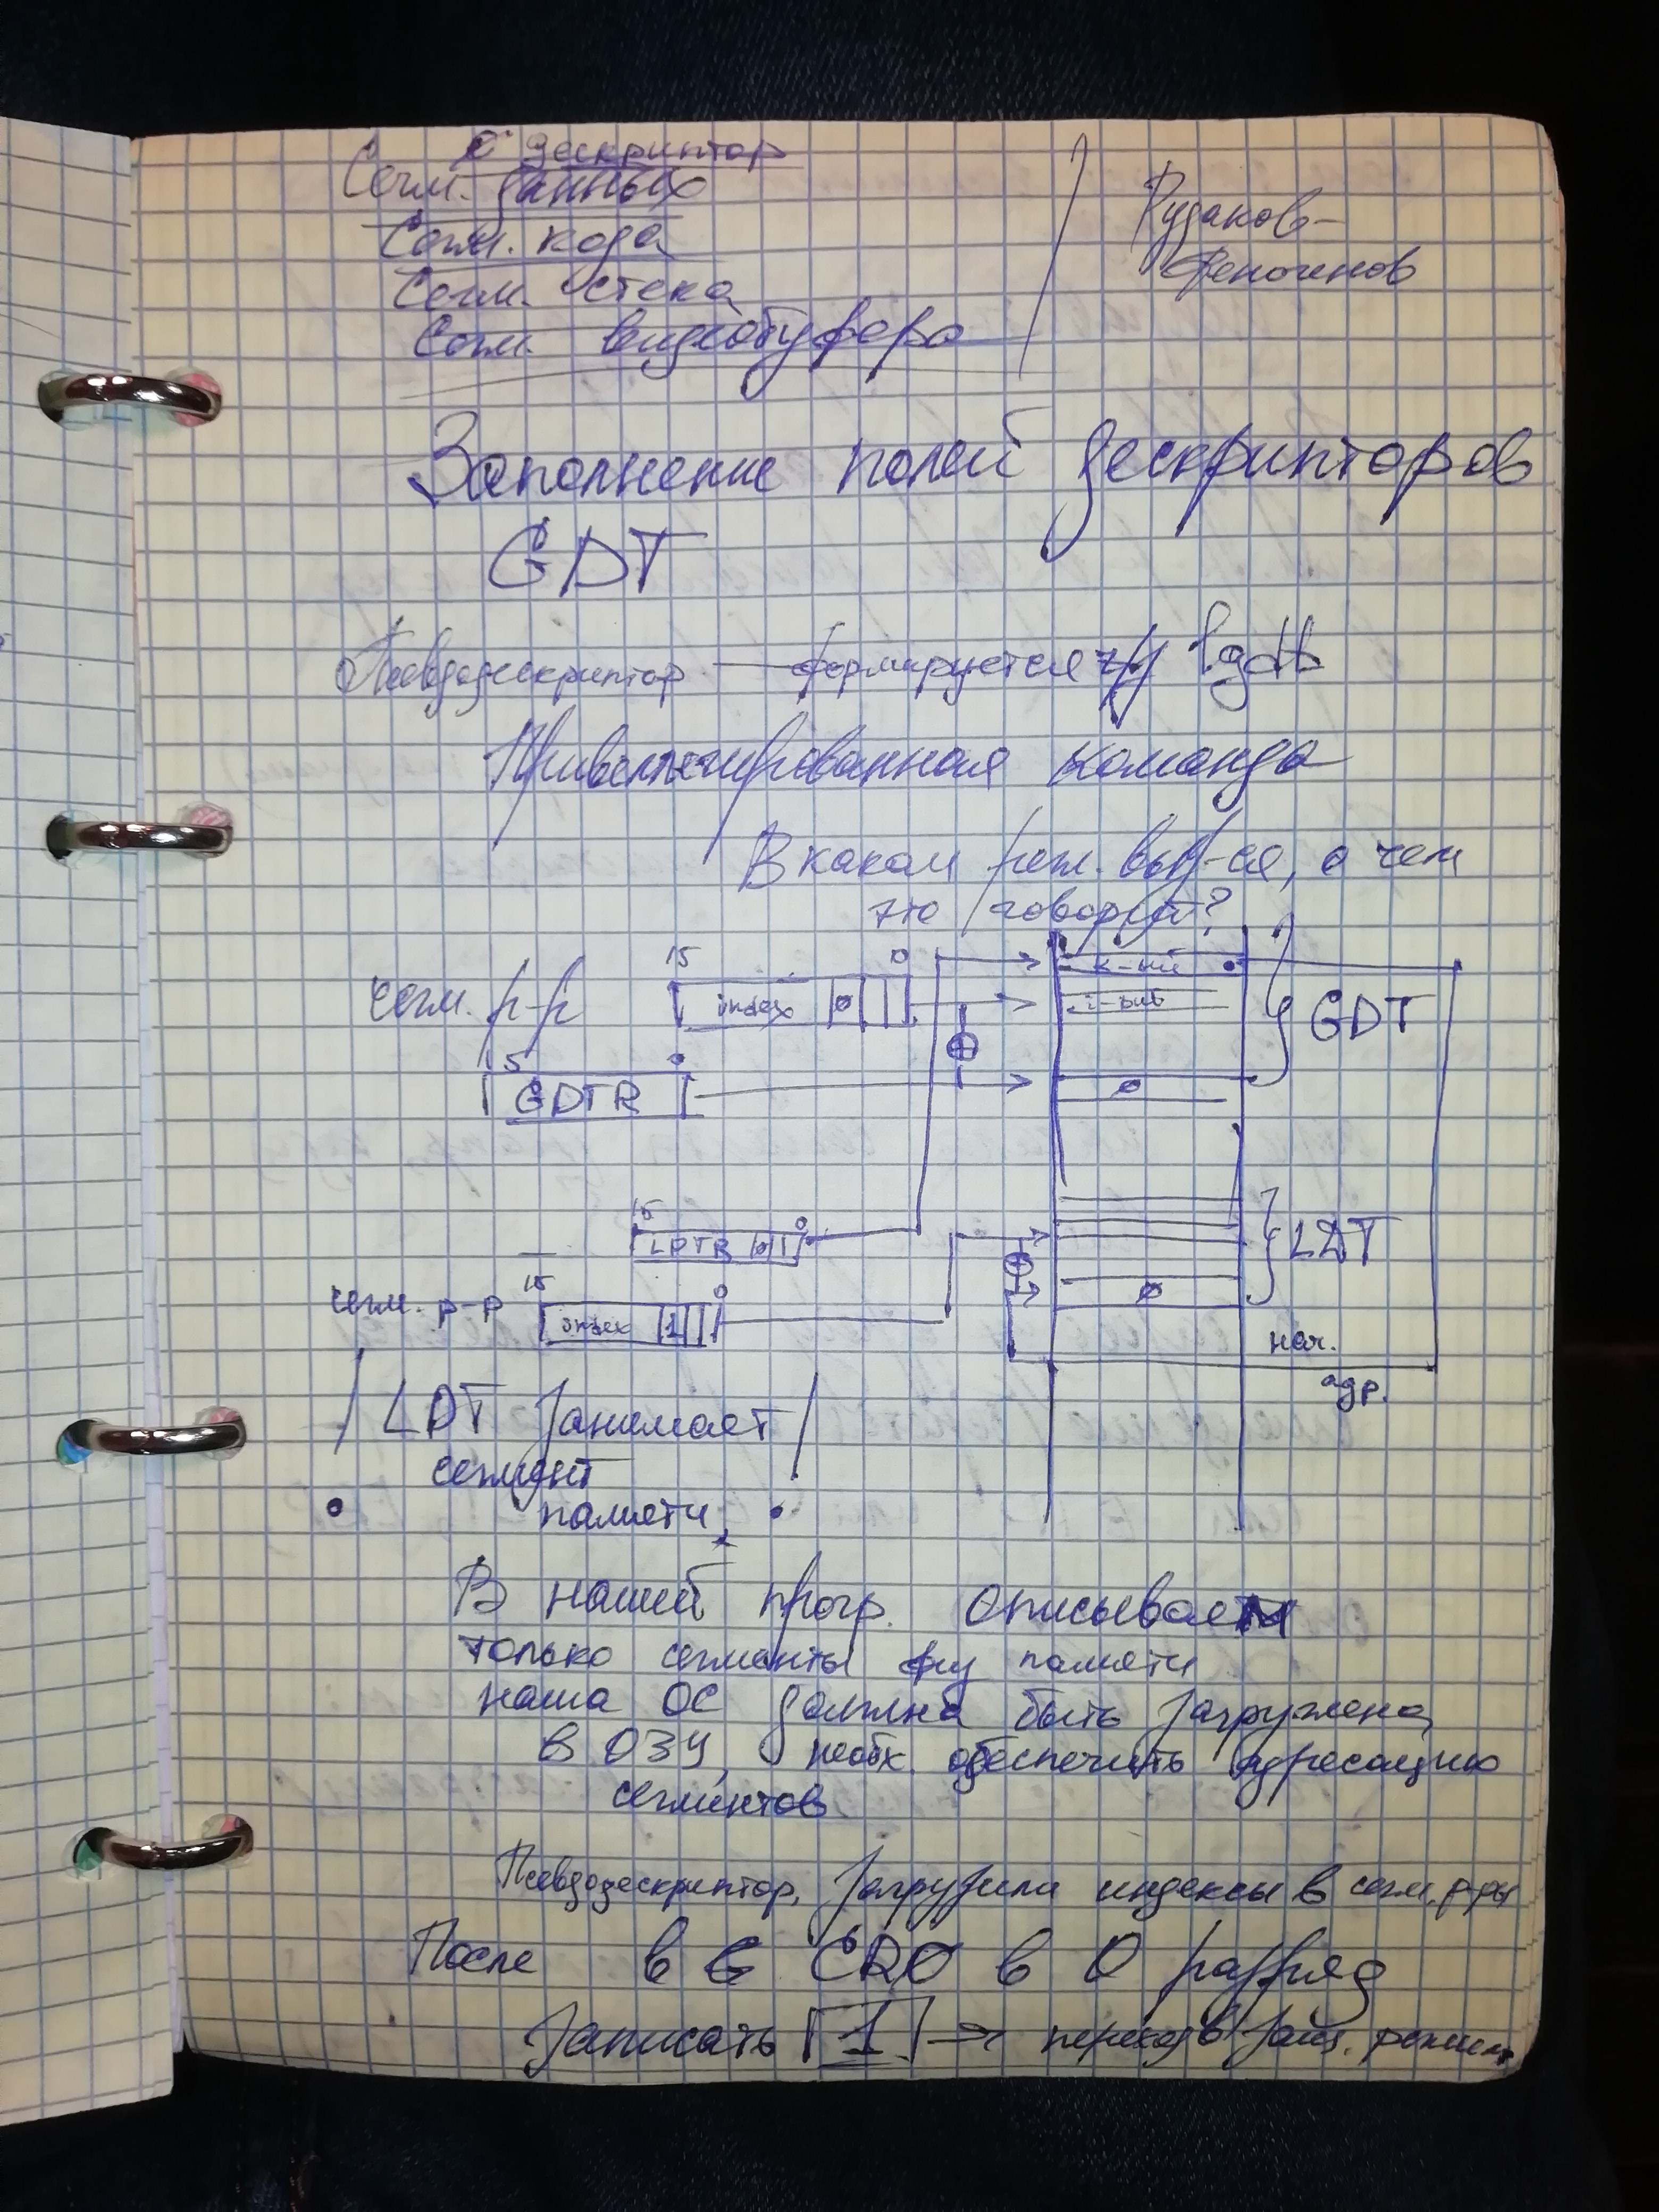 0 дескриптор
Сегм. данных
Сегм. кода
Сегм. стека
Сегм. видеобуфера
Рудаков-
Феногенов
Заполнение полей дескрипторов
GDT
Псевдодескриптор — формируется lgdt
Привелегированная команда
В каком реж. вып-ся, о чем
это говорит?
15 0
сегм. р-р index 0
к-ый
i-ый
GDT
15 0
GDTR
0
15 0
LDTR 0
LDT
0
15 0
сегм. р-р index 1
нач.
адр.
LDT занимает
сегмент
памяти
В нашей прогр. описываем
только сегменты физ памяти
наша ОС должна быть загружена
в ОЗУ, необх. обеспечить адресацию
сегментов
Псевдодескриптор, загрузили индексы в сегм. р-ры
После в CR0 в 0 разряд
записать 1 → переход в защ. режим